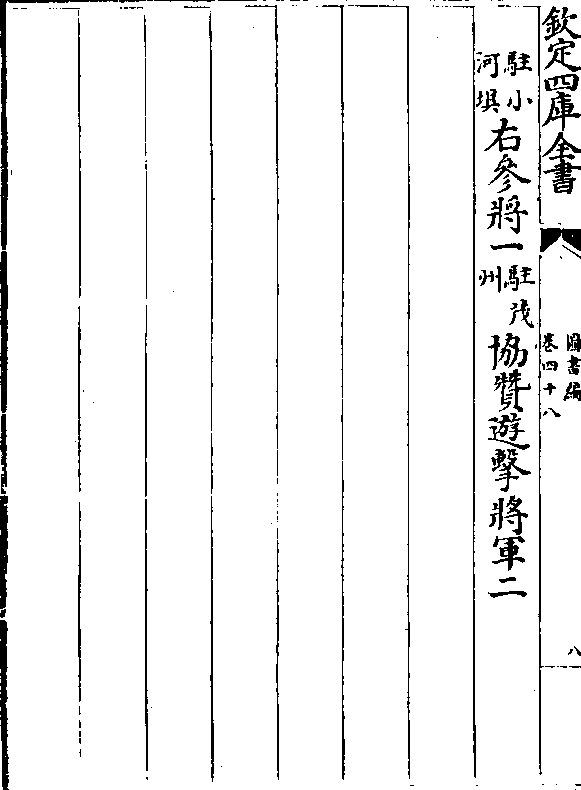 欽定四庫全書
圖書編
卷四十八
八
駐小河埧右參將一駐茂州協贊遊擊將軍二